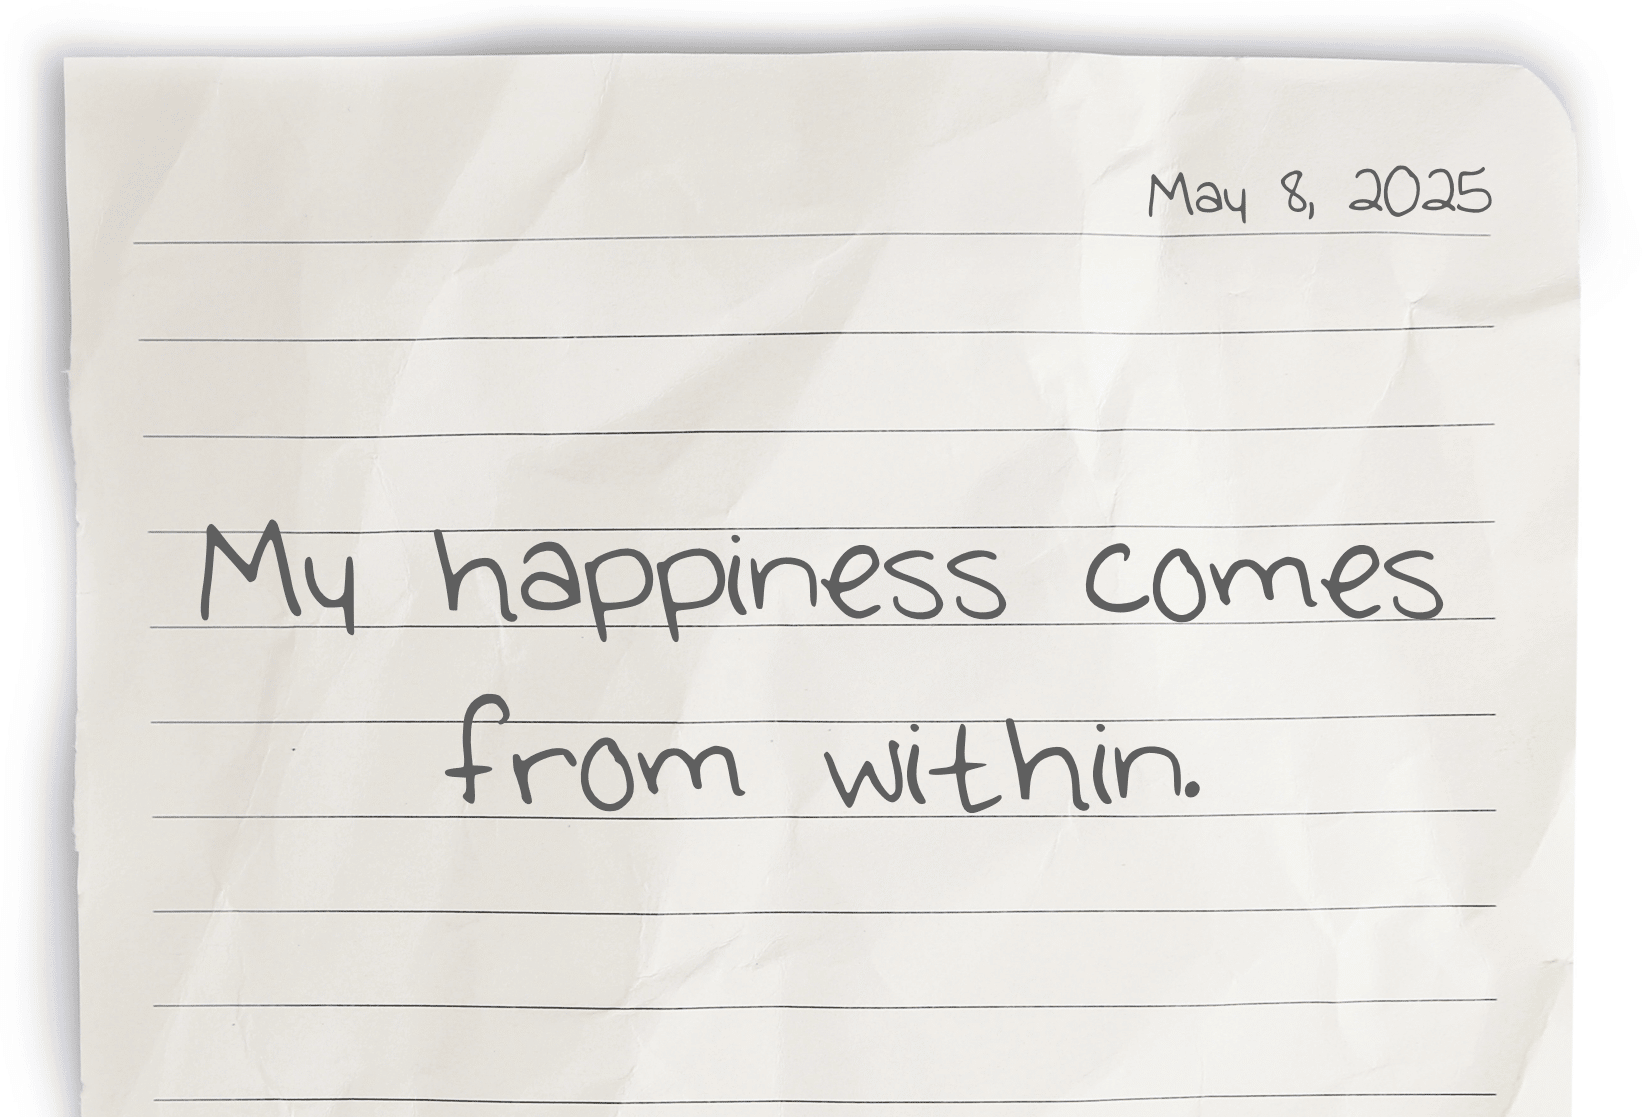 May 8, 2025
My happiness comes
from within.